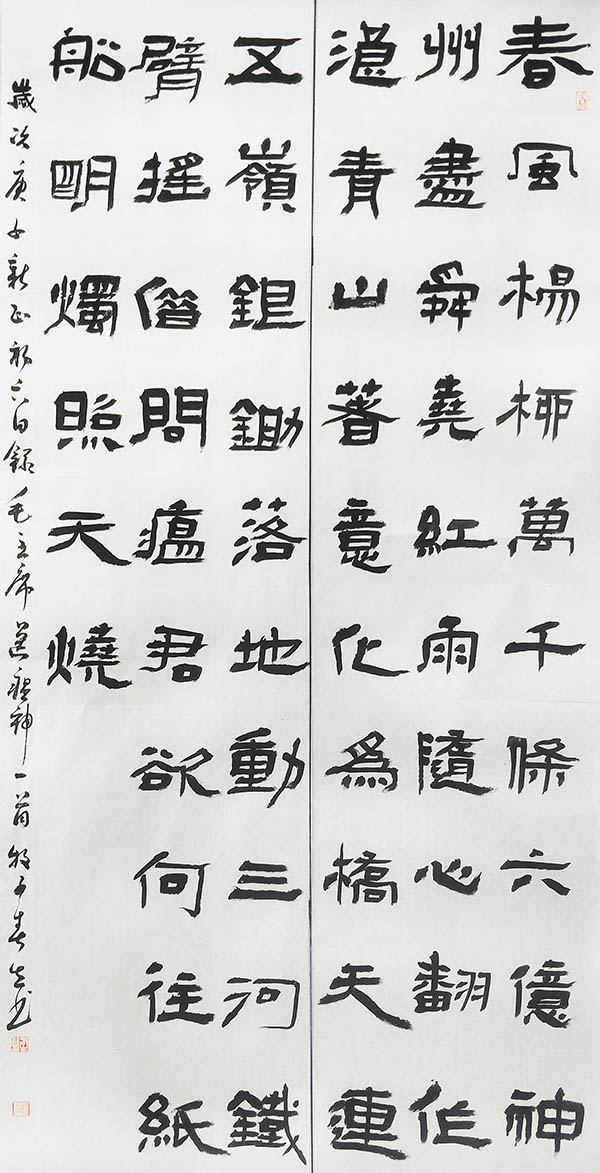 春風楊柳萬千條六億神
州盡舜堯紅雨隨心翻作
浪青山著意化為橋天連
五嶺銀鋤落地動三河鐵
臂搖借問瘟君欲何往紙
船明燭照天燒
歲次庚子新正初六日錄毛主席送瘟神一首